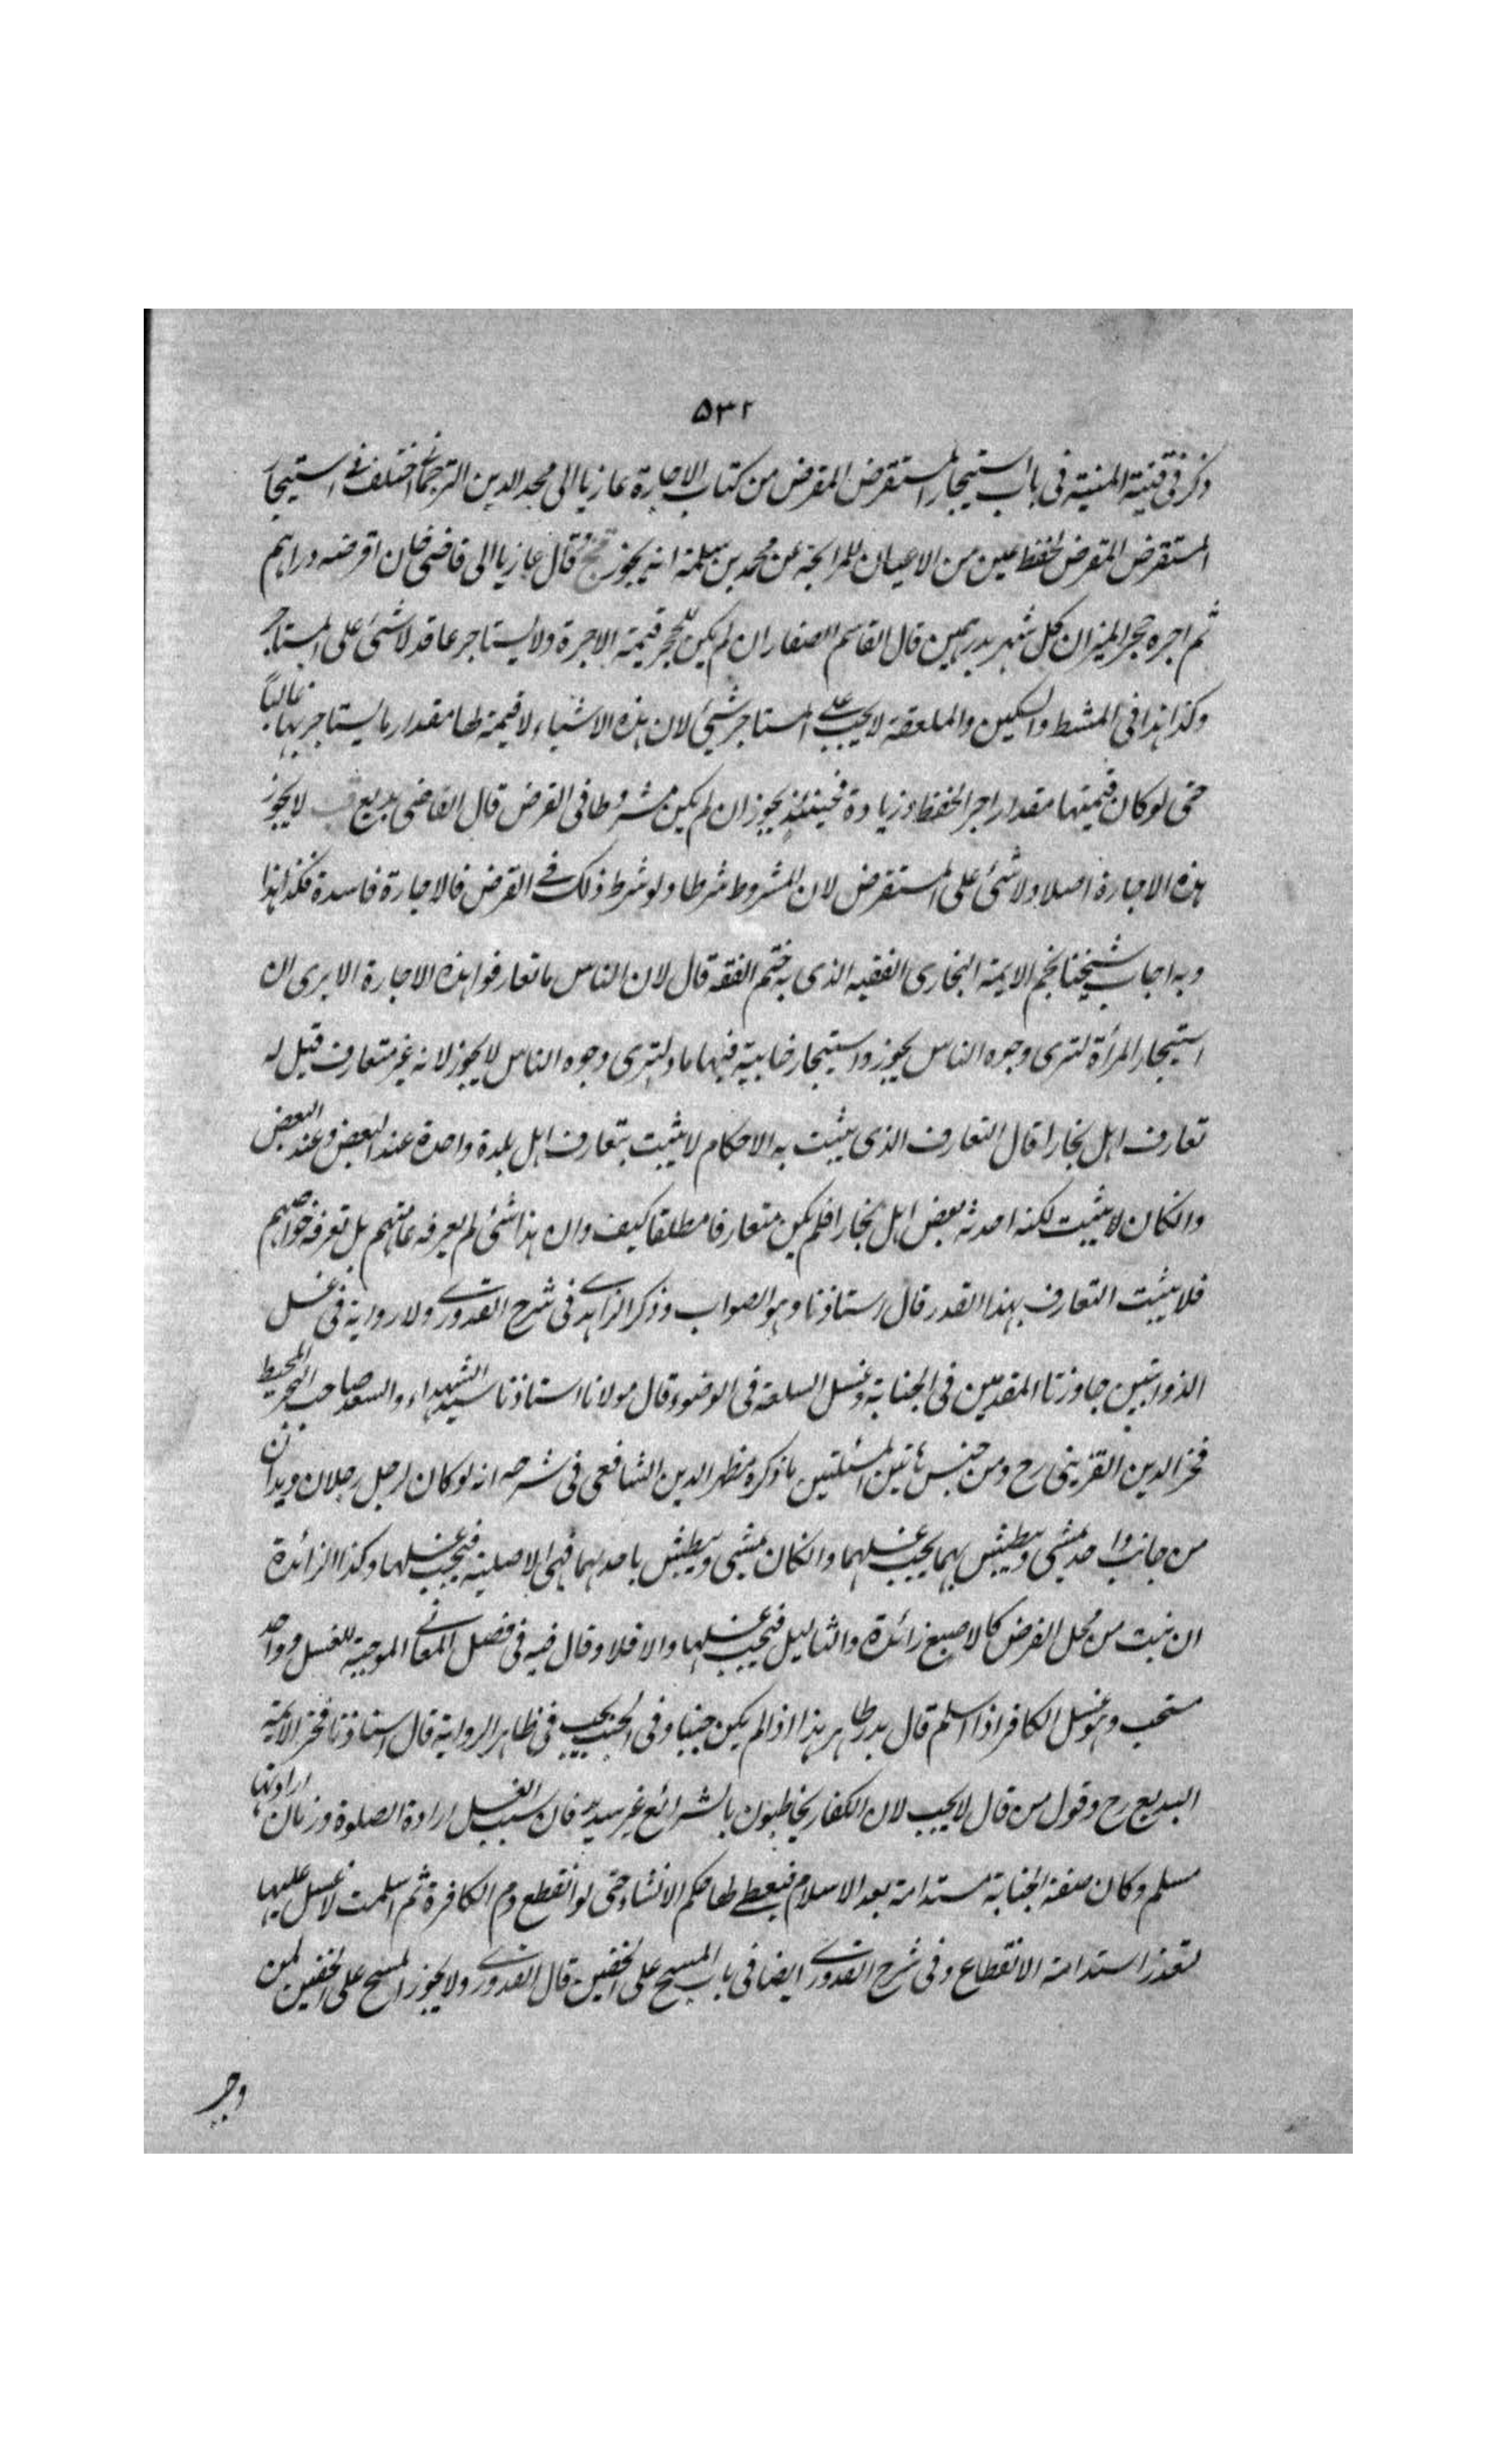 ٥٣٢
ذكر فى قنية المنية فى باب استيجار المستقرض المقرض من كتاب الاجارة عازيا الى مجد الدين الترجمانى اختلف فى استيجار
المستقرض المقرض لحفظ عين من الاعيان للمرابحة عن محمد بن سلمة انه يجوز وقال عازيا الى قاضى خان اقرضه دراهم
ثم اجره حجر الميزان كل شهر بدرهمين قال القاسم الصفار ان لم يكن للحجر قيمة الاجرة ولا يستاجر عاقد لا شئ على المستاجر
وكذا هذا فى المشط والسكين والملعقة لا يجب على المستاجر شئ لان هذه الاشياء لا قيمة لها مقدار ما يستاجر بها غالبا
حتى لو كان قيمتها مقدار اجر الحفظ وزيادة فحينئذ يجوز ان لم يكن مشروطا فى القرض قال القاضى بديع لا يجوز
هذه الاجارة اصلا ولا شئ على المستقرض لان المشروط شرطا ولو شرط ذلك فى القرض فالاجارة فاسدة فكذا هذا
وبه اجاب شيخنا نجم الايمة البخارى الفقيه الذى به ختم الفقه قال لان الناس ما تعارفوا هذه الاجارة الا يرى ان
استيجار المرأة لترى وجوه الناس يجوز واستيجار خابية فيها ماء ليرى وجوه الناس لا يجوز لانه غير متعارف قيل له
تعارف اهل بخارا قال التعارف الذى يثبت به الاحكام لا يثبت بتعارف اهل بلدة واحدة عند البعض وعند البعض
وانكان لا يثبت لكنه احدثه بعض اهل بخارا فلم يكن متعارفا مطلقا كيف وان هذا شئ لم يعرفه عامتهم بل تعرفه خواصهم
فلا يثبت التعارف بهذا القدر قال استاذنا وهو الصواب وذكر الزاهدى فى شرح القدورى ولا رواية فى غسل
الذوابتين جاوزتا القدمين فى الجنابة وغسل السلعة فى الوضوء وقال مولانا استاذنا سيد الشهداء والسعداء صاحب البحر المحيط
فخر الدين القزينى رح ومن جنس هاتين المسئلتين ما ذكره مظهر الدين الشافعى فى شرحه انه لو كان لرجل رجلان ويدان
من جانب واحد يمشى ويبطش بهما يجب غسلهما وانكان يمشى ويبطش باحدهما فهى الاصلية فيجب غسلها وكذا الزائدة
ان نبتت من محل الفرض كالاصبع زائدة والثاليل فيجب غسلها والا فلا وقال فيه فى فصل المعانى الموجبة للغسل وواحد
مستحب وهو غسل الكافر اذا اسلم قال بدر طاهر هذا اذا لم يكن جنبا وفى الجنب يجب فى ظاهر الرواية قال استاذنا فخر الائمة
البديع رح وقول من قال لا يجب لان الكفار يخاطبون بالشرائع غير سديد فان سبب الغسل ارادة الصلوة وزمان ارادتها
مسلم وكان صفة الجنابة مستدامة بعد الاسلام فيعطى لها حكم الانشاء حتى لو انقطع دم الكافرة ثم اسلمت لا غسل عليها
لتعذر استدامة الانقطاع وفى شرح القدورى ايضا فى باب المسح على الخفين قال القدورى ولا يجوز المسح على الخفين لمن
وجب